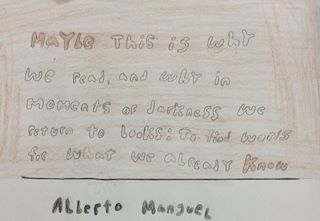 Maybe This is why
we read, and why in
moments of darkness we
return to books: To find words
for what we already know
Alberto Manguel